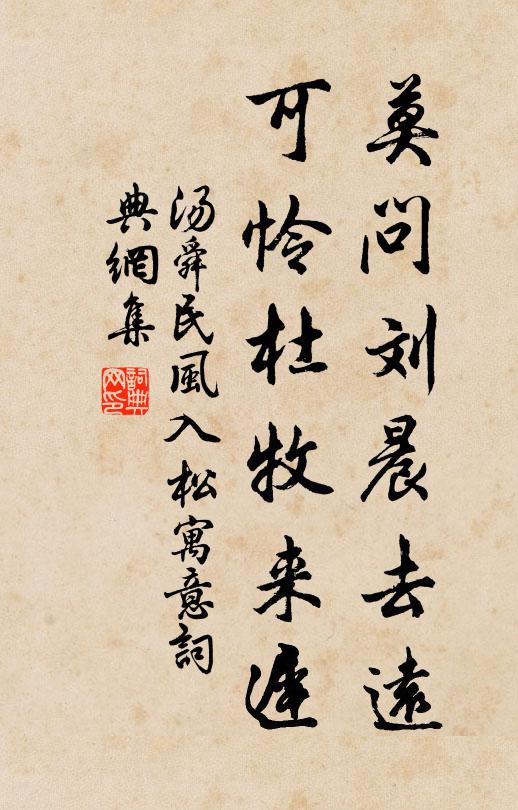 莫问刘晨去遠
可怜杜牧来遲
汤舜民風入松寓意詞
典網集
詞典网印